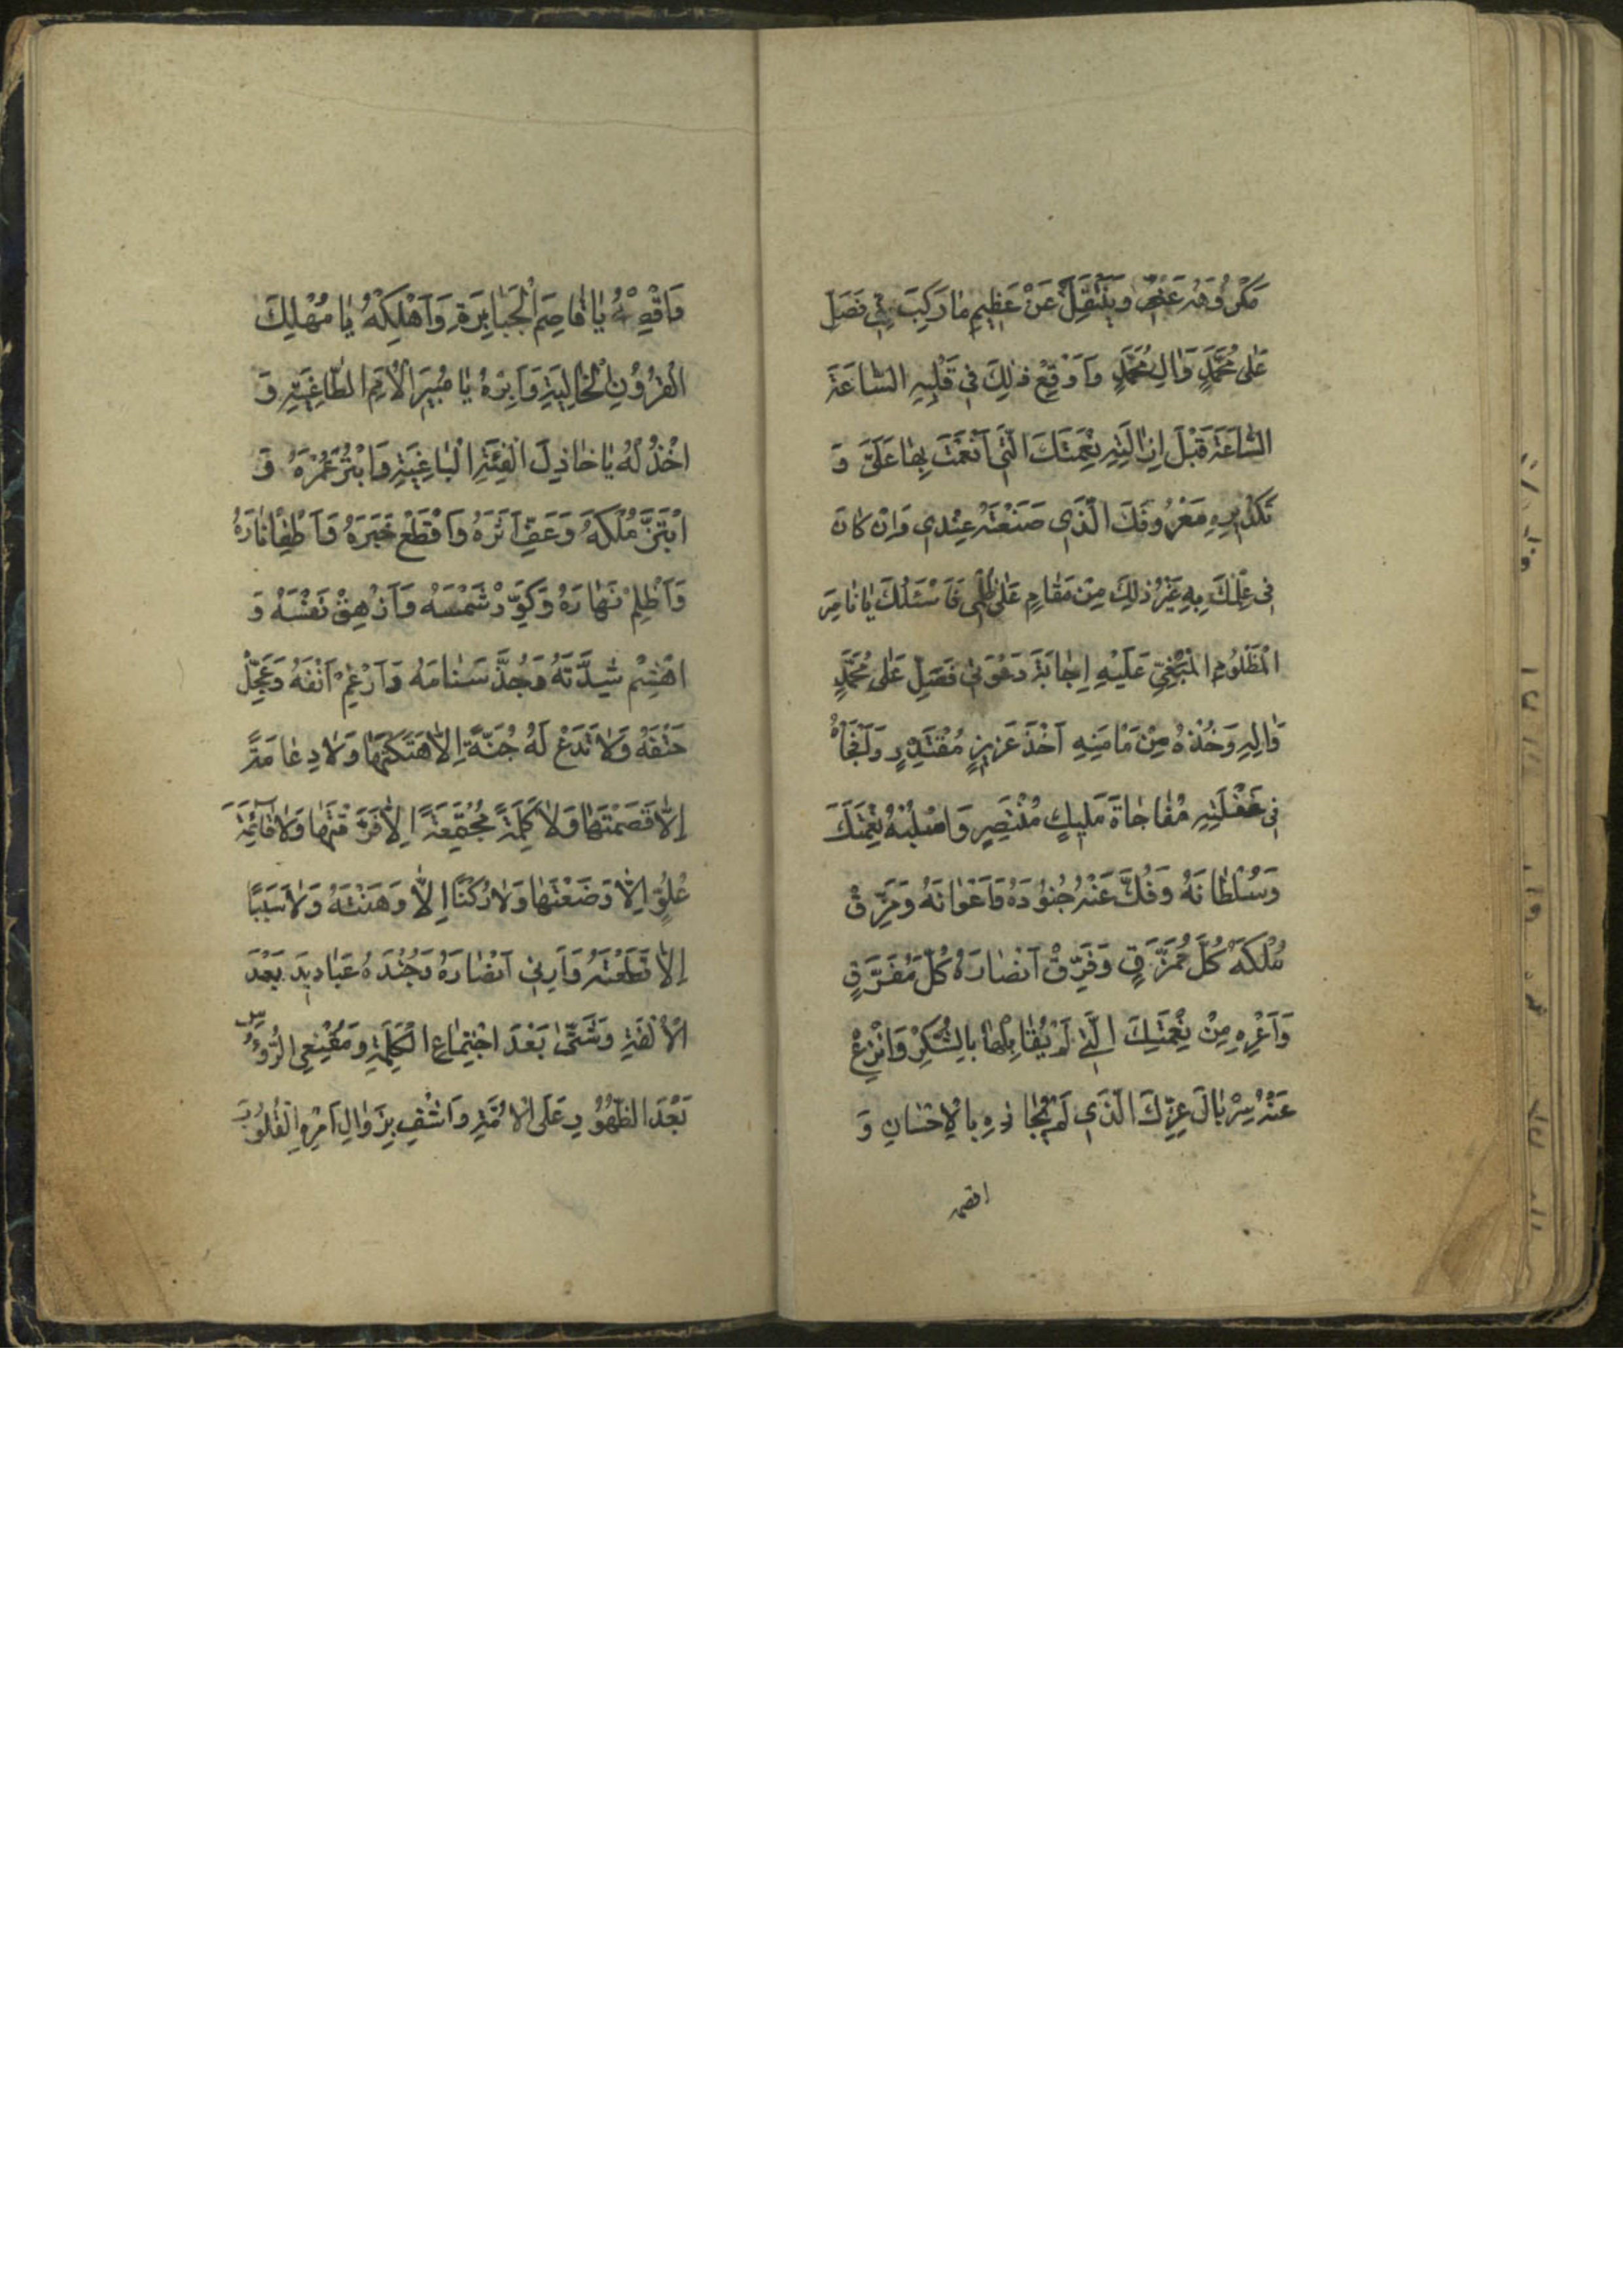 مَكْرُوهَهُ عَنِّي وَيَنْتَقِلُ عَنْ عَظِيمِ مَا رَكِبَ مِنِّي فَصَلِّ
عَلىٰ مُحَمَّدٍ وَالِ مُحَمَّدٍ وَاَوْقِعْ ذٰلِكَ فِي قَلْبِهِ السَّاعَةَ
السَّاعَةَ قَبْلَ اِزَالَتِهِ نِعْمَتَكَ الَّتِي اَنْعَمْتَ بِهَا عَلَيَّ وَ
تَكْدِيرِهِ مَعْرُوفَكَ الَّذِي صَنَعْتَهُ عِنْدِي وَاِنْ كَانَ
فِي عِلْمِكَ بِهِ غَيْرُ ذٰلِكَ مِنْ مَقَامٍ عَلىٰ ظُلْمِي فَاَسْئَلُكَ يَا نَاصِرَ
الْمَظْلُومِ الْمَبْغِيِّ عَلَيْهِ اِجَابَةَ دَعْوَتِي فَصَلِّ عَلىٰ مُحَمَّدٍ
وَالِهِ وَخُذْهُ مِنْ مَاْمَنِهِ اَخْذَ عَزِيزٍ مُقْتَدِرٍ وَافْجَأْهُ
فِي غَفْلَتِهِ مُفَاجَاةَ مَلِيكٍ مُنْتَصِرٍ وَاسْلُبْهُ نِعْمَتَكَ
وَسُلْطَانَهُ وَفُكَّ عَنْهُ جُنُودَهُ وَاَعْوَانَهُ وَمَزِّقْ
مُلْكَهُ كُلَّ مُمَزَّقٍ وَفَرِّقْ اَنْصَارَهُ كُلَّ مُفَرَّقٍ
وَاَعْرِهِ مِنْ نِعْمَتِكَ الَّتِي لَمْ يُقَابِلْهَا بِالشُّكْرِ وَانْزِعْ
عَنْهُ سِرْبَالَ عِزِّكَ الَّذِي لَمْ يُجَازِهِ بِالْاِحْسَانِ وَ
اقصمه
وَاقْصِمْهُ يَا قَاصِمَ الْجَبَابِرَةِ وَاَهْلِكْهُ يَا مُهْلِكَ
الْقُرُونِ الْخَالِيَةِ وَاَبِرْهُ يَا مُبِيرَ الْاُمَمِ الطَّاغِيَةِ وَ
اخْذُلْهُ يَا خَاذِلَ الْفِئَةِ الْبَاغِيَةِ وَابْتُرْ عُمْرَهُ وَ
ابْتَزَّ مُلْكَهُ وَعَفِّ اَثَرَهُ وَاقْطَعْ خَبَرَهُ وَاَطْفِأْ نَارَهُ
وَاَظْلِمْ نَهَارَهُ وَكَوِّرْ شَمْسَهُ وَاَزْهِقْ نَفْسَهُ وَ
اهْشِمْ شِدَّتَهُ وَجُذَّ سَنَامَهُ وَاَرْغِمْ اَنْفَهُ وَعَجِّلْ
حَتْفَهُ وَلَا تَدَعْ لَهُ جُنَّةً اِلَّا هَتَكْتَهَا وَلَا دِعَامَةً
اِلَّا قَصَمْتَهَا وَلَا كَلِمَةً مُجْتَمِعَةً اِلَّا فَرَّقْتَهَا وَلَا قَائِمَةَ
عُلُوٍّ اِلَّا وَضَعْتَهَا وَلَا رُكْنًا اِلَّا وَهَنْتَهُ وَلَا سَبَبًا
اِلَّا قَطَعْتَهُ وَاَرِنِي اَنْصَارَهُ وَجُنْدَهُ عَبَادِيدَ بَعْدَ
الْاُلْفَةِ وَشَتّىٰ بَعْدَ اجْتِمَاعِ الْكَلِمَةِ وَمُقْنِعِي الرُّؤُسِ
بَعْدَ الظُّهُورِ عَلَى الْاُمَّةِ وَاشْفِ بِزَوَالِ اَمْرِهِ الْقُلُوبَ